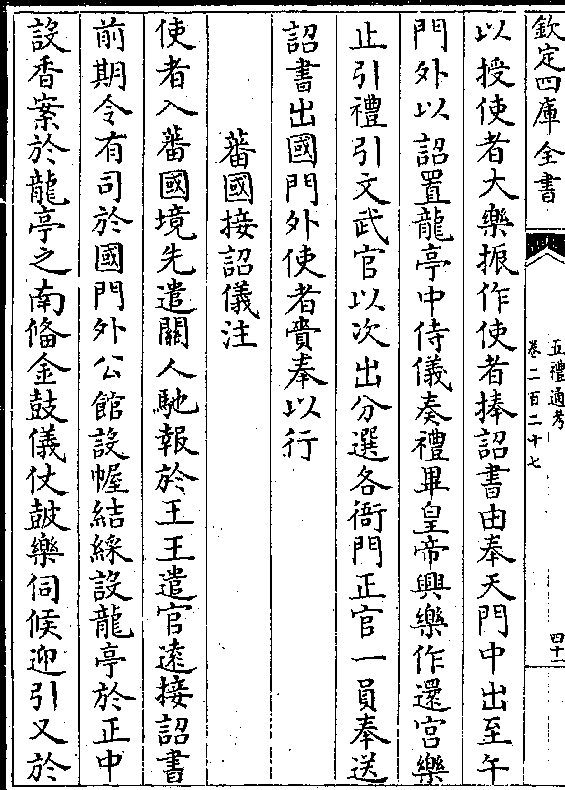 欽定四庫全書
五禮通考
卷二百二十七
四十二
以授使者大樂振作使者捧詔書由奉天門中出至午
門外以詔置龍亭中侍儀奏禮畢皇帝興樂作還宮樂
止引禮引文武官以次出分選各衙門正官一員奉送
詔書出國門外使者賫奉以行
蕃國接詔儀注
使者入蕃國境先遣關人馳報於王王遣官遠接詔書
前期令有司於國門外公館設幄結綵設龍亭於正中
設香案於龍亭之南備金鼓儀仗鼓樂伺候迎引又於